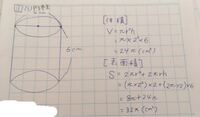 (2)円柱
6cm
[体積]
V=πr²h
=π×2²×6
=24π(cm³)
[表面積]
S=2πr²+2πrh
=(π×2²)×2+(2π×2)×6
=8π+24π
=32π(cm²)